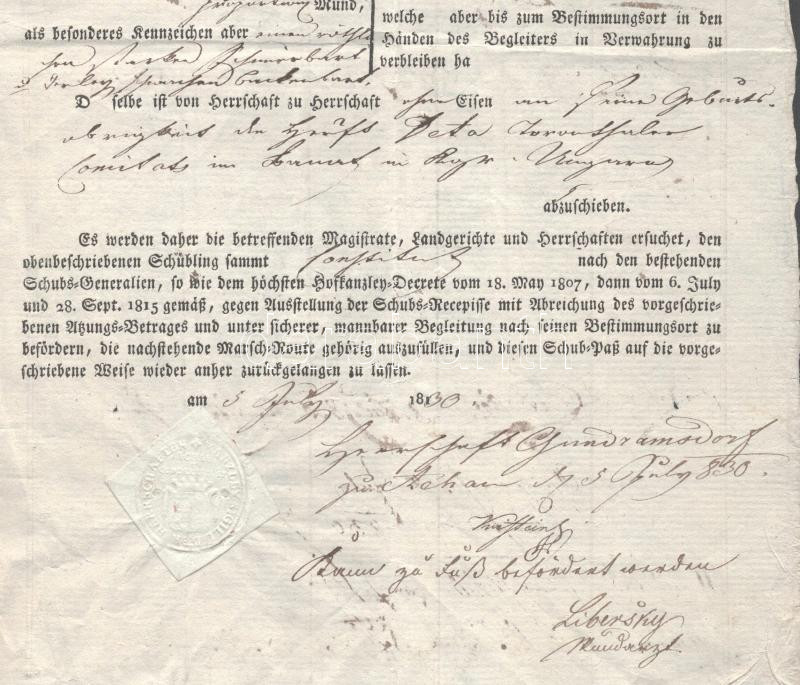 proportion Mund,
als besonderes Kennzeichen aber einen röthli
chen starken Schnurbart
welche aber bis zum Bestimmungsort in den
Händen des Begleiters in Verwahrung zu
verbleiben ha
D selbe ist von Herrschaft zu Herrschaft ohne Eisen an seine Geburts-
obrigkeit die Herrft Deta Toronthaler
Comitats im Banat in Kgr. Ungarn
abzuschieben.
Es werden daher die betreffenden Magistrate, Landgerichte und Herrschaften ersuchet, den
obenbeschriebenen Schübling sammt nach den bestehenden
Schubs-Generalien, so wie dem höchsten Hofkanzley-Decrete vom 18. May 1807, dann vom 6. July
und 28. Sept. 1815 gemäß, gegen Ausstellung der Schubs-Recepisse mit Abreichung des vorgeschrie-
benen Atzungs-Betrages und unter sicherer, mannbarer Begleitung nach seinen Bestimmungsort zu
befördern, die nachstehende Marsch-Route gehörig auszufüllen, und diesen Schub-Paß auf die vorge-
schriebene Weise wieder anher zurückgelangen zu lassen.
am 5 July 1830
Herrschaft Gundramsdorf
zu Achau d 5 July 830.
Kann zu Fuß befördert werden
Libersky
Wundarzt